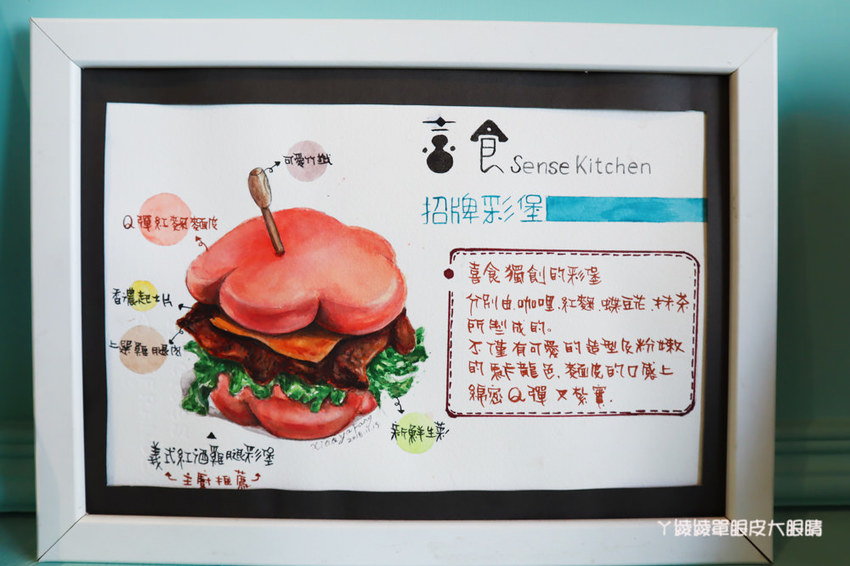 喜食 Sense Kitchen
招牌彩堡
可愛竹籤
Q彈紅麴麵皮
香濃起士片
上選雞腿肉
新鮮生菜
義式紅酒雞腿彩堡
主廚推薦
喜食獨創的彩堡
分別由咖哩、紅麴、蝶豆花、抹茶
所製成的。
不僅有可愛的造型及粉嫩
的馬卡龍色、麵皮的口感上
綿密Q彈又紮實.
2018.1.15
ㄚ綾綾單眼皮大眼睛